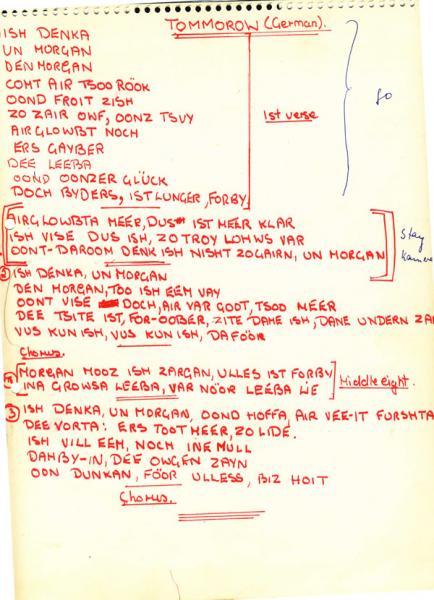 TOMMOROW (German).
ISH DENKA
UN MORGAN
DEN MORGAN
COMT AIR TSOO RÖÖK
OOND FROIT ZISH
ZO ZAIR OWF, OONZ TSVY
AIRGLOWBT NOCH
ERS GAYBER
DEE LEEBA
OOND OONZER GLÜCK
DOCH BYDERS, IST LUNGER, FORBY.
1st verse
go
AIRGLOWBTA MEER, DUS IST MEER KLAR
ISH VISE DUS ISH, ZO TROY LOHWS VAR
OONT-DAROOM DENK ISH NISHT ZOGAIRN, UN MORGAN
Stay
② ISH DENKA, UN MORGAN
DEN MORGAN, TOO ISH EEM VAY
OONT VISE DOCH, AIR VAR GOOT, TSOO MEER
DEE TSITE IST, FOR-OOBER, ZITE DAHE ISH, DANE UNDERN ZA
VUS KUN ISH, VUS KUN ISH, DAFÖÖR
Chorus.
MORGAN MOOZ ISH ZARGAN, ULLES IST FORBY
INA GROWSA LEEBA, VAR NÖÖR LEEBA LIE
Middle eight.
③ ISH DENKA, UN MORGAN, OOND HOFFA, AIR VEE-IT FURSHTA
DEE VORTA: ERS TOOT MEER, ZO LIDE.
ISH VILL EEM, NOCH INE MULL
DAHBY-IN, DEE OWGEN ZAYN
OON DUNKAN, FÖÖR ULLESS, BIZ HOIT
Chorus.